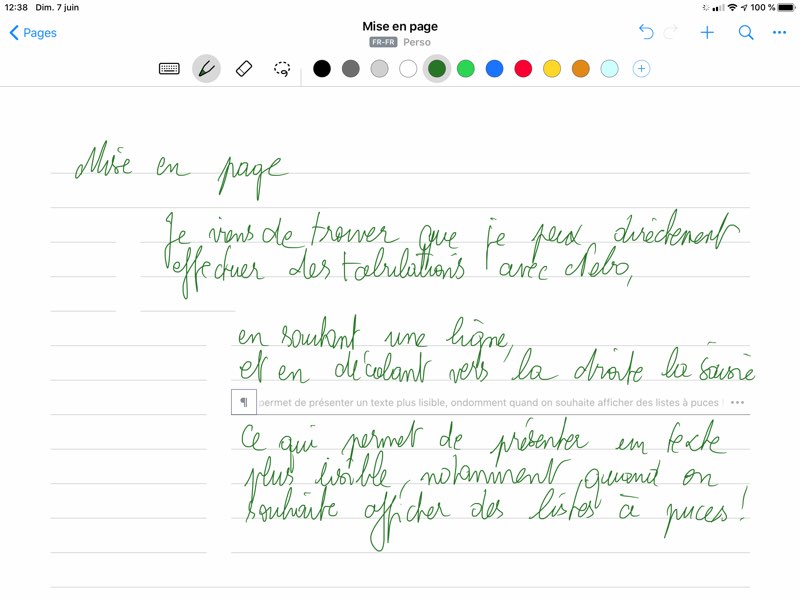 12:38 Dim. 7 juin 100 %
Pages
Mise en page
FR-FR Perso
Mise en page
Je viens de trouver que je peux directement
effectuer des tabulations avec Nebo,
en sautant une ligne,
et en décalant vers la droite la saisie
permet de présenter un texte plus lisible, ondomment quand on souhaite afficher des listes à puces !
Ce qui permet de présenter un texte
plus lisible, notamment quand on
souhaite afficher des listes à puces !